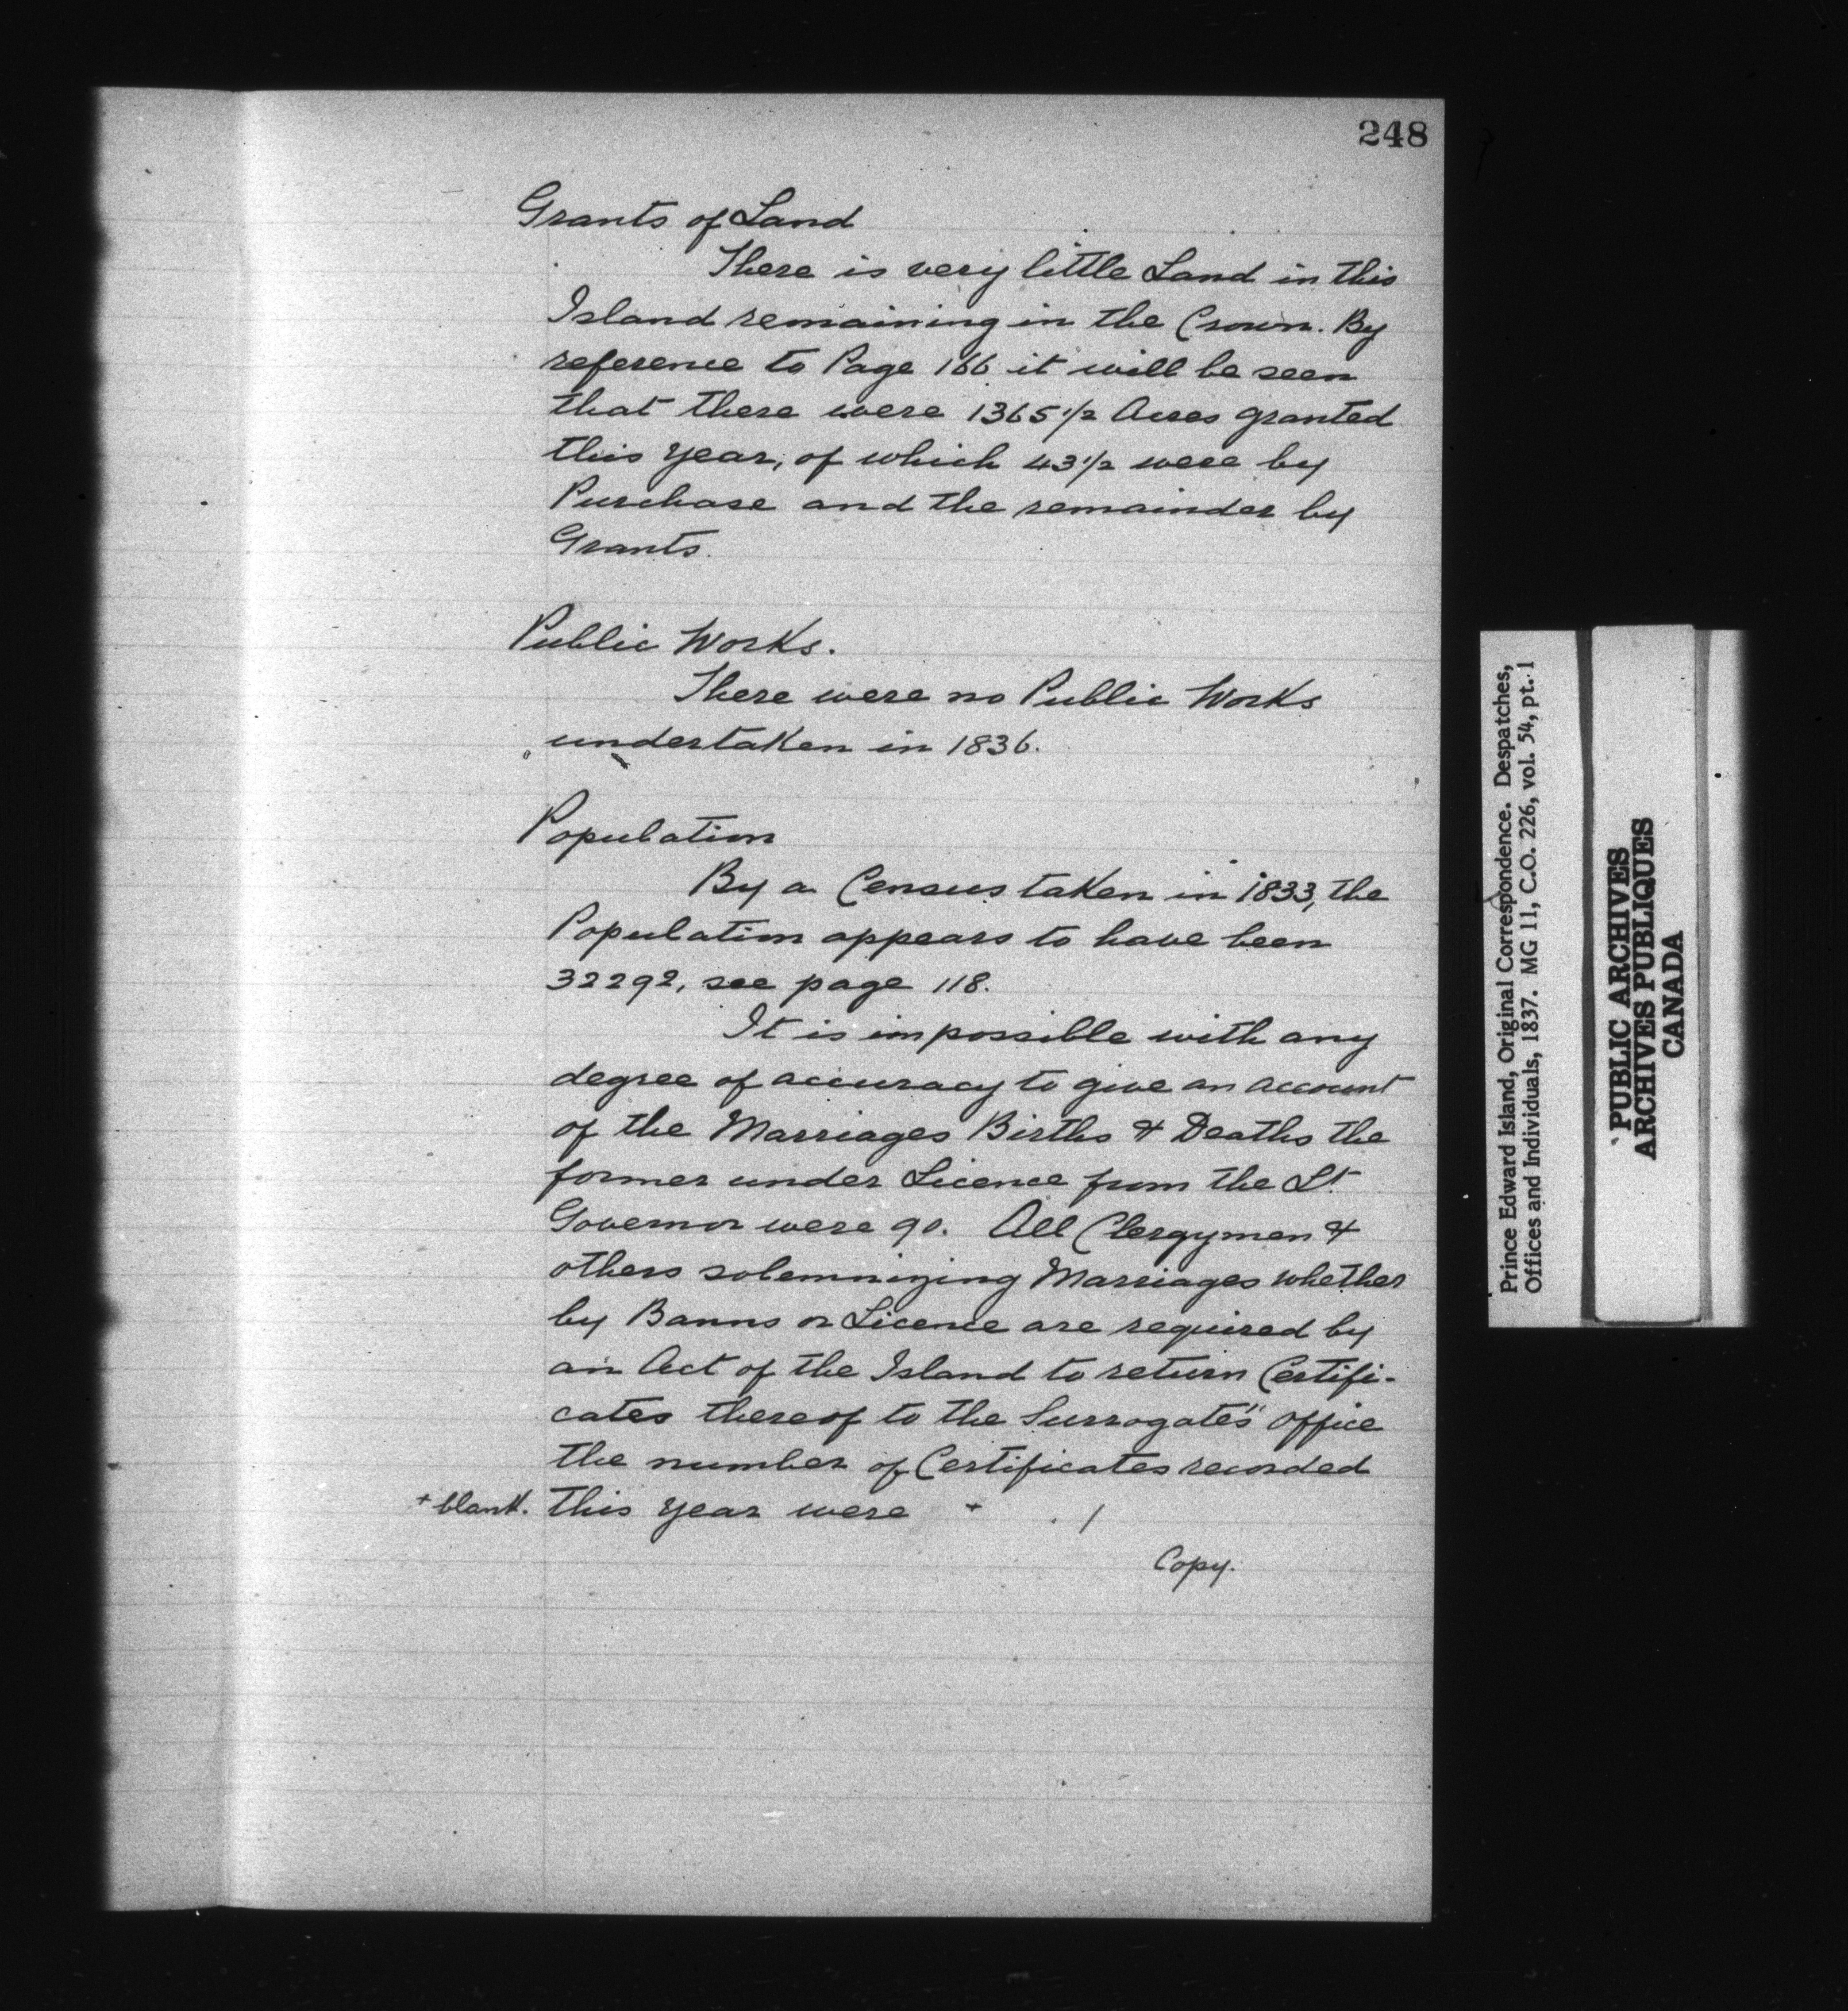 248
Grants of Land
There is very little Land in this
Island remaining in the Crown. By
reference to Page 166 it will be seen
that there were 1365 1/2 Acres granted
this year, of which 43 1/2 were by
Purchase and the remainder by
Grants.
Public Works.
There were no Public Works
undertaken in 1836.
Population
By a Census taken in 1833, the
Population appears to have been
32292, see page 118.
It is impossible with any
degree of accuracy to give an account
of the Marriages Births & Deaths the
former under Licence from the Lt.
Governor were 90. All Clergymen &
others solemnizing Marriages whether
by Banns or Licence are required by
an Act of the Island to return Certifi-
cates thereof to the Surrogate's" Office
the number of Certificates recorded
+ blank. this year were + . /
Copy.
Prince Edward Island, Original Correspondence. Despatches,
Offices and Individuals, 1837. MG 11, C.O. 226, vol. 54, pt. 1
PUBLIC ARCHIVES
ARCHIVES PUBLIQUES
CANADA